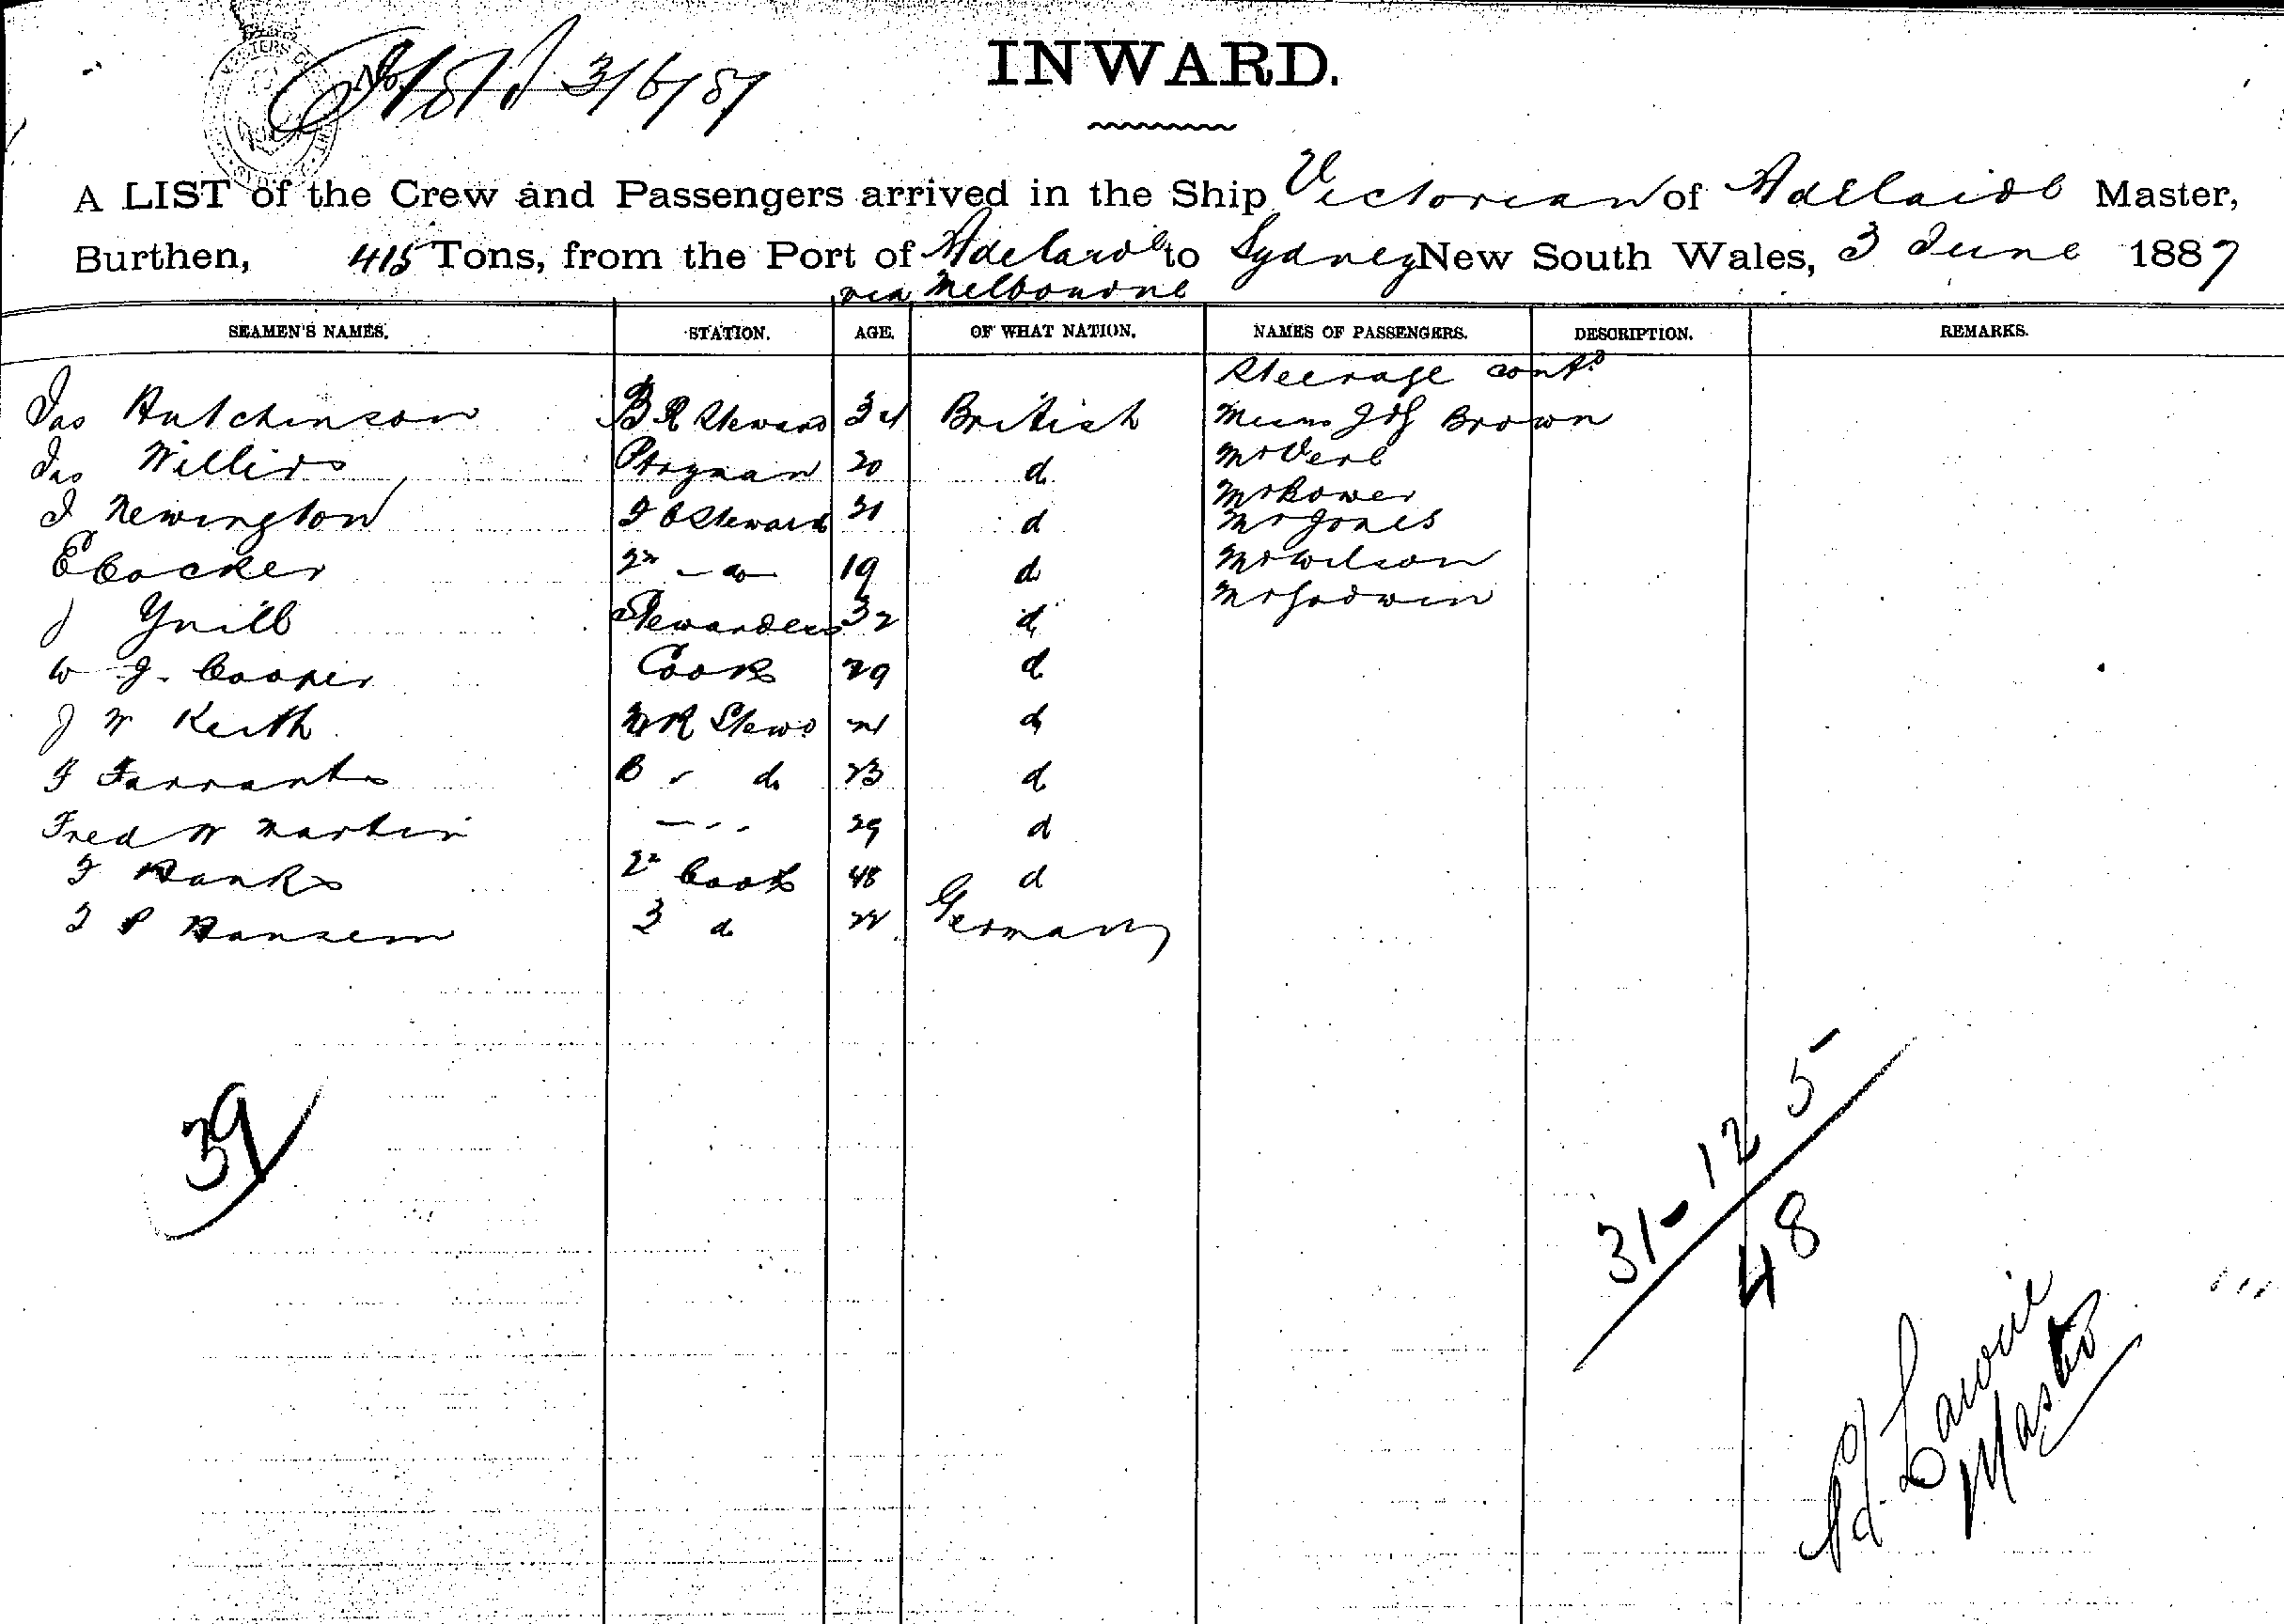 INWARD.
3/6/87
A LIST of the Crew and Passengers arrived in the Ship Victorian of Adelaide Master,
Burthen, 415 Tons, from the Port of Adelaide to Sydney New South Wales, 3 June 1887
via Melbourne
SEAMEN'S NAMES. STATION. AGE. OF WHAT NATION. NAMES OF PASSENGERS. DESCRIPTION. REMARKS.
Steerage contd
Jas Hutchinson B R Steward 34 British Brown
Jas Pantryman 20 d Mr Vere
J Newington F C Steward 21 d Mr Bower
Mr Jones
E Cocker 2n - do 19 d Mr Wilson
J Stewardess 32 d Mr Godwin
W J. Cooper Cook 29 d
J W Keith R Stewd 21 d
F Farrants B d 23 d
Fred W Martin - - - 29 d
F Hanks 2n Cook 48 d
J P Hansem 3 d 22 Germany
39
31-12 5
48
Lawrie
Master